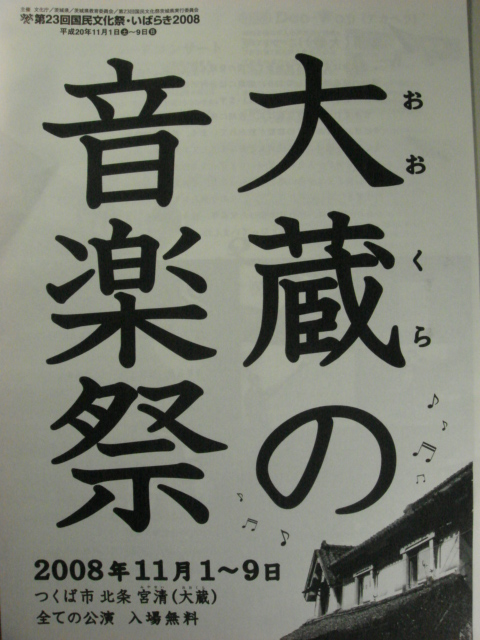 主催 文化庁／茨城県／茨城県教育委員会／第23回国民文化祭茨城県実行委員会
第23回国民文化祭・いばらき2008
平成20年11月1日㊏～9日㊐
大蔵の
おおくら
音楽祭
2008年11月1～9日
つくば市 北条 宮清(大蔵)
全ての公演 入場無料